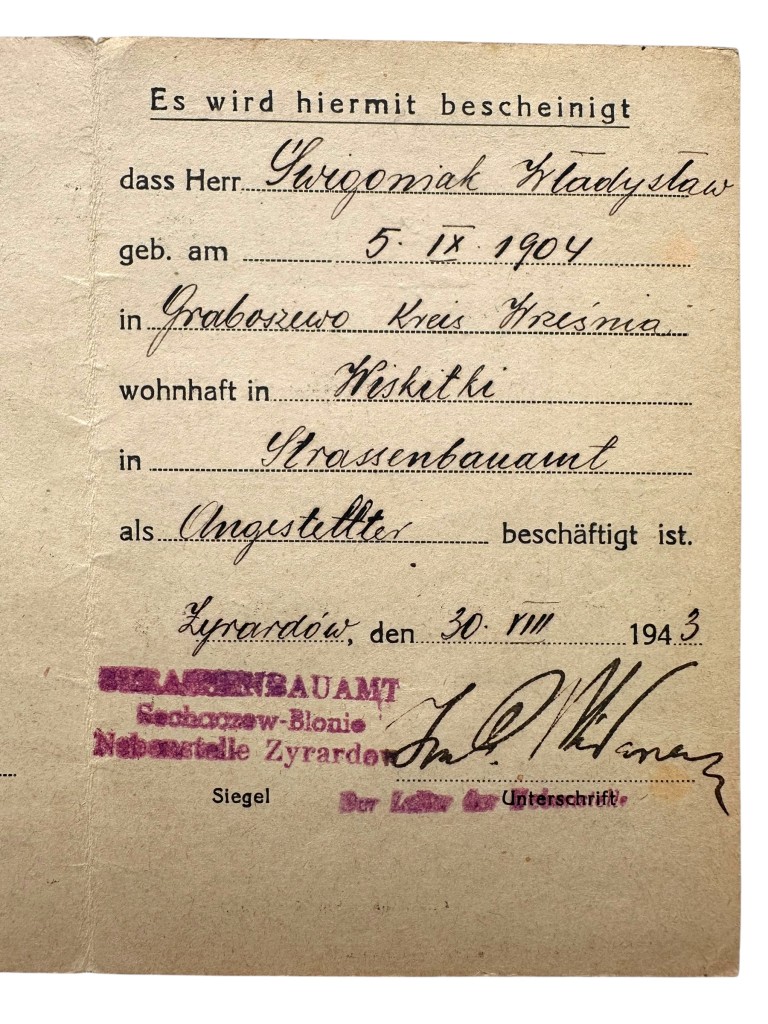 Es wird hiermit bescheinigt
dass Herr Świgoniak Władysław
geb. am 5. IX. 1904
in Graboszewo Kreis Września
wohnhaft in Wiskitki
in Strassenbauamt
als Angestellter beschäftigt ist.
Żyrardów, den 30. VIII 1943
STRASSENBAUAMT
Sochaczew-Blonie
Nebenstelle Zyrardow
Siegel Unterschrift
Der Leiter der Nebenstelle